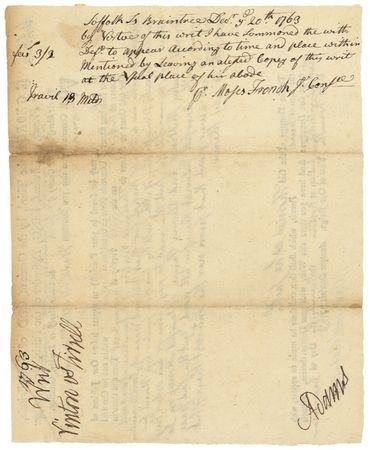 Suffolk Ss Braintree Decr. ye. 20th. 1763
by Vertue of this writ I have Sommoned the with
Deft. to appear According to time and place within
Mentioned by Leaving an atested Copy of this writ
at the Usual place of his abode
fees 3/2
Travil 13 Miles
Pr. Moses French Jr. Conse
1763
Writ
Vinton vs Tirrell
Adams